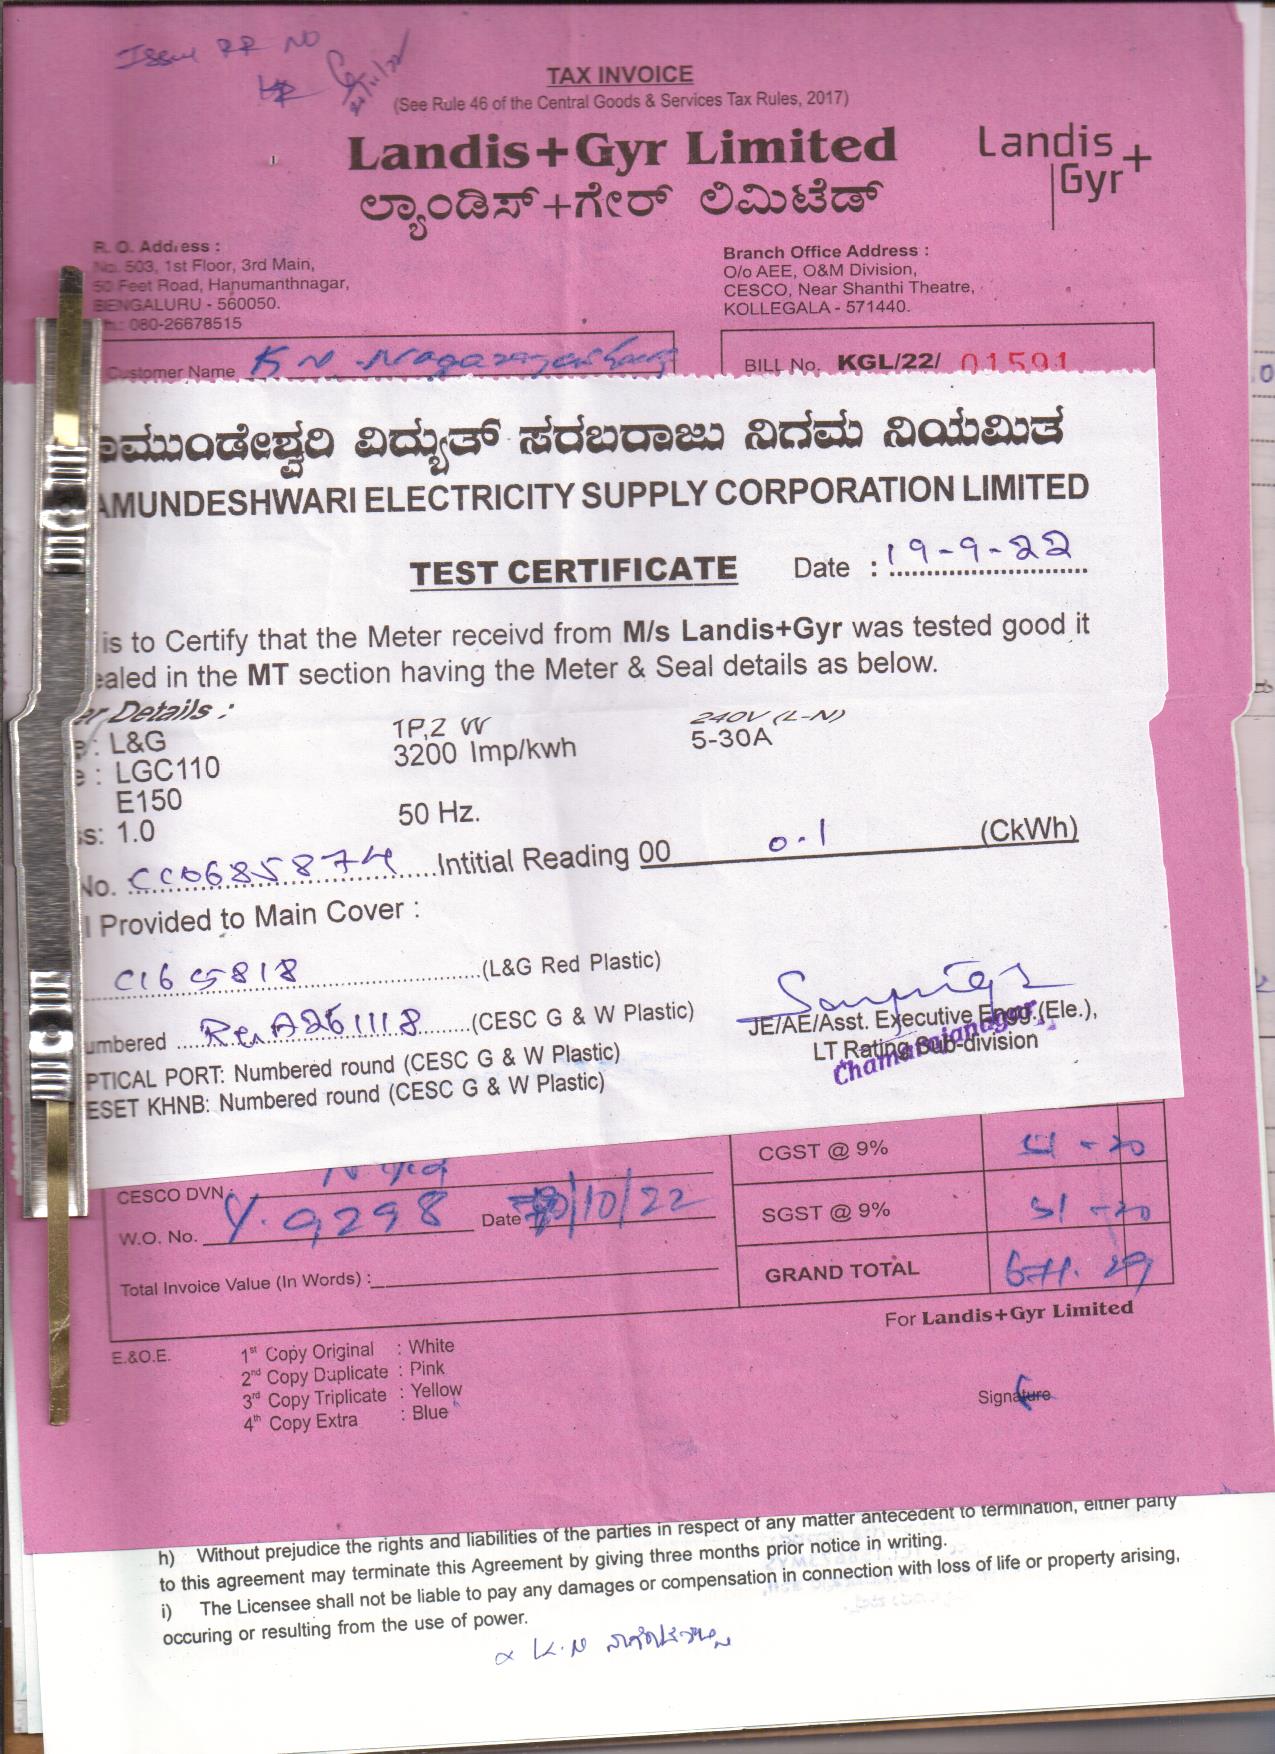 Issue RR NO
TAX INVOICE
(See Rule 46 of the Central Goods & Services Tax Rules, 2017)
Landis+Gyr Limited
ಲ್ಯಾಂಡಿಸ್+ಗೇರ್ ಲಿಮಿಟೆಡ್
Landis
Gyr+
R. O. Address :
No. 503, 1st Floor, 3rd Main,
50 Feet Road, Hanumanthnagar,
BENGALURU - 560050.
080-26678515
Branch Office Address :
O/o AEE, O&M Division,
CESCO, Near Shanthi Theatre,
KOLLEGALA - 571440.
Customer Name K N
BILL No. KGL/22/ 01591
ಾಮುಂಡೇಶ್ವರಿ ವಿದ್ಯುತ್ ಸರಬರಾಜು ನಿಗಮ ನಿಯಮಿತ
AMUNDESHWARI ELECTRICITY SUPPLY CORPORATION LIMITED
TEST CERTIFICATE Date : 19-9-22
is to Certify that the Meter receivd from M/s Landis+Gyr was tested good it
ealed in the MT section having the Meter & Seal details as below.
er Details : 1P,2 W 240V (L-N)
e : L&G 3200 Imp/kwh 5-30A
e : LGC110
E150 50 Hz.
ss: 1.0
No. CC0685874 Intitial Reading 00 0.1 (CkWh)
l Provided to Main Cover :
C165818 (L&G Red Plastic)
umbered A261118 (CESC G & W Plastic)
PTICAL PORT: Numbered round (CESC G & W Plastic)
ESET KHNB: Numbered round (CESC G & W Plastic)
JE/AE/Asst. Executive Engg.(Ele.),
LT Rating Sub-division
Chamarajanagar
CGST @ 9% 51-20
CESCO DVN:
W.O. No. Y.9298 Date /10/22
SGST @ 9% 51-20
Total Invoice Value (In Words) :
GRAND TOTAL 671.29
For Landis+Gyr Limited
E.&O.E.
1st Copy Original : White
2nd Copy Duplicate : Pink
3rd Copy Triplicate : Yellow
4th Copy Extra : Blue
Signature
h) Without prejudice the rights and liabilities of the parties in respect of any matter antecedent to termination, either party
to this agreement may terminate this Agreement by giving three months prior notice in writing.
i) The Licensee shall not be liable to pay any damages or compensation in connection with loss of life or property arising,
occuring or resulting from the use of power.
K.N